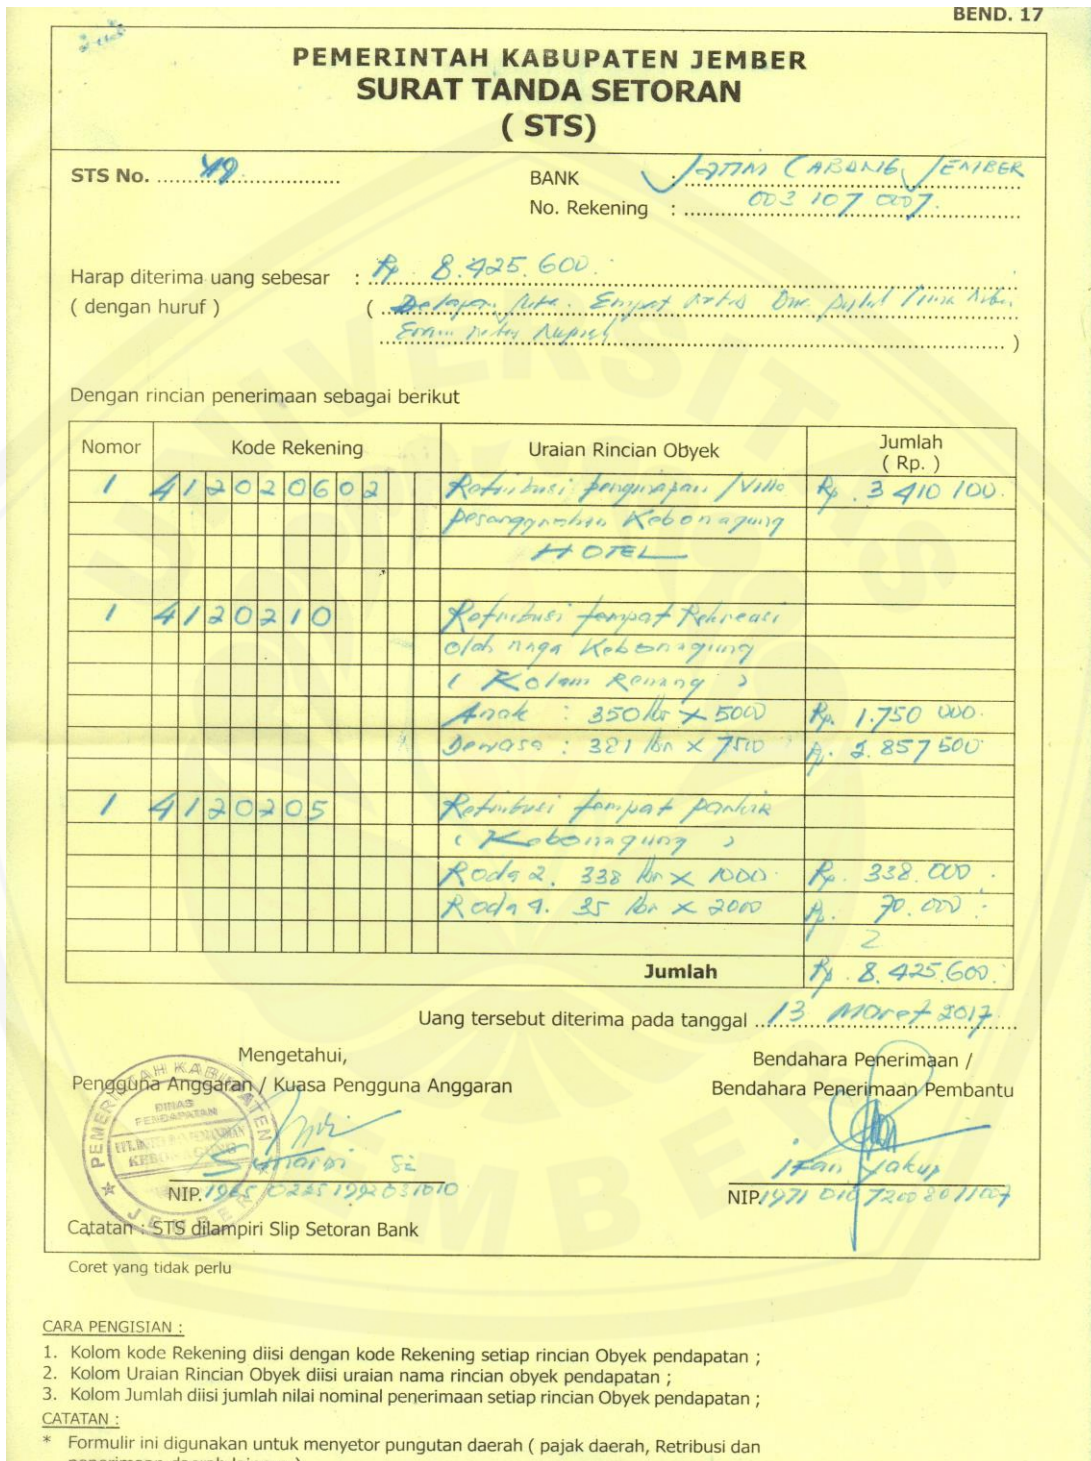 BEND. 17
PEMERINTAH KABUPATEN JEMBER
SURAT TANDA SETORAN
( STS)
STS No. 49
BANK : JATIM CABANG JEMBER
No. Rekening : 003 107 0007.
Harap diterima uang sebesar : Rp. 8.425.600.
( dengan huruf ) ( Delapan Juta Empat ratus Dua puluh lima ribu
Enam ratus Rupiah )
Dengan rincian penerimaan sebagai berikut
Nomor Kode Rekening Uraian Rincian Obyek Jumlah
( Rp. )
1 412020602 Retribusi penginapan / Villa Rp. 3 410 100.
pesanggrahan Kebonagung
HOTEL
1 4120210 Retribusi tempat Rekreasi
olah raga Kebonagung
( Kolam Renang )
Anak : 350 lbr x 5000 Rp. 1.750 000.
Dewasa : 381 lbr x 7500 Rp. 2.857 500
1 4120205 Retribusi tempat parkir
( Kebonagung )
Roda 2. 338 lbr x 1000. Rp. 338.000.
Roda 4. 35 lbr x 2000 Rp. 70.000.
Jumlah Rp. 8.425.600.
Uang tersebut diterima pada tanggal 13 Maret 2017
Mengetahui,
Pengguna Anggaran / Kuasa Pengguna Anggaran
Bendahara Penerimaan /
Bendahara Penerimaan Pembantu
PEMERINTAH KABUPATEN
DINAS
PENDAPATAN
KEBONAGUNG
JEMBER
Sunardi SE
Ifan Yakup
NIP.
NIP.
Catatan : STS dilampiri Slip Setoran Bank
Coret yang tidak perlu
CARA PENGISIAN :
1. Kolom kode Rekening diisi dengan kode Rekening setiap rincian Obyek pendapatan ;
2. Kolom Uraian Rincian Obyek diisi uraian nama rincian obyek pendapatan ;
3. Kolom Jumlah diisi jumlah nilai nominal penerimaan setiap rincian Obyek pendapatan ;
CATATAN :
* Formulir ini digunakan untuk menyetor pungutan daerah ( pajak daerah, Retribusi dan
UNIVERSITAS
JEMBER